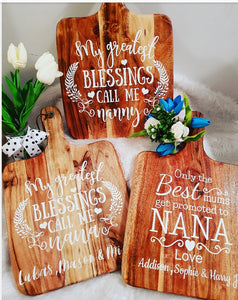 My greatest
BLESSINGS
CALL ME
nanny
My greatest
BLESSINGS
CALL ME
nana
Lucas, Mason & M
Only the
Best mums
get promoted to
NANA
Love
Addison, Sophie & Harry